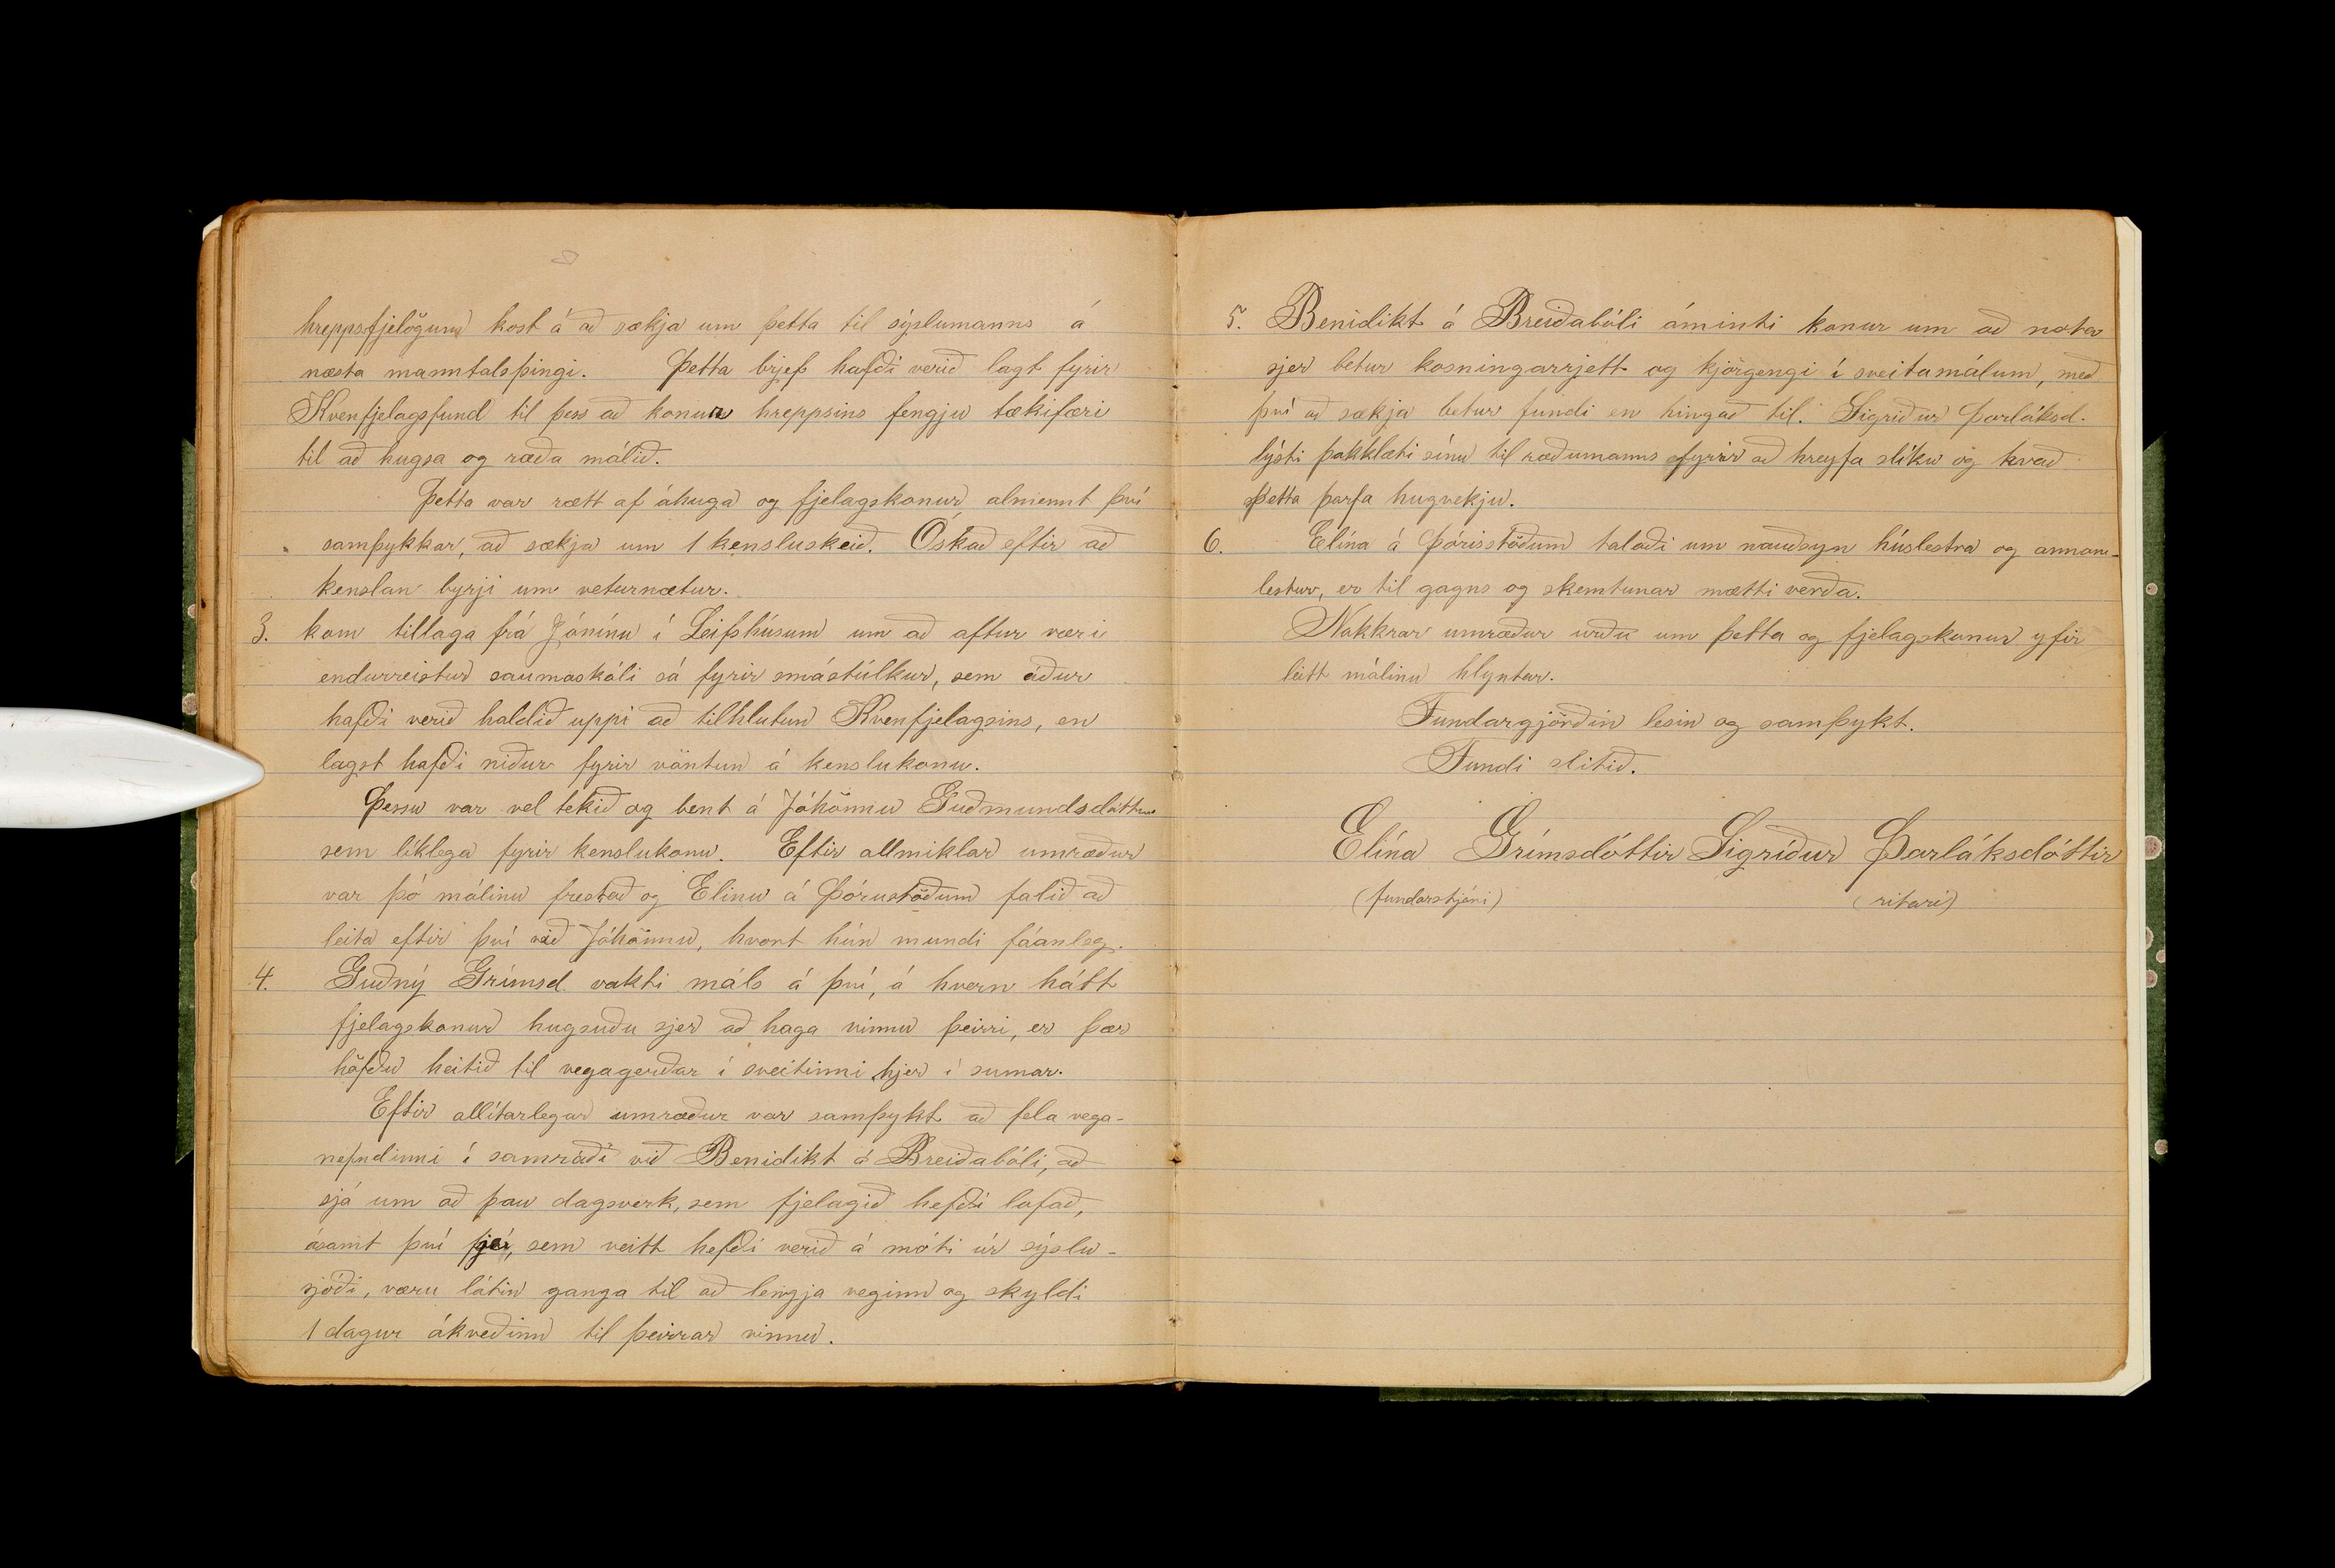 hreppsfjelögum kost á að sækja um þetta til sýslumanns á
næsta manntalsþingi. Þetta brjef hafði verið lagt fyrir
Kvenfjelagsfund til þess að konur hreppsins fengju tækifæri
til að hugsa og ræða málið.
Þetta var rætt af áhuga og fjelagskonur almennt því
samþykkar, að sækja um 1 kensluskeið. Óskað eftir að
kenslan byrji um veturnætur.
3. kom tillaga frá Jónínu í Leifshúsum um að aftur væri
endurreistur saumaskóli sá fyrir smástúlkur, sem áður
hafði verið haldið uppi að tilhlutun Kvenfjelagsins, en
lagst hafði niður fyrir vöntun á kenslukonu.
Þessu var vel tekið og bent á Jóhönnu Guðmundsdóttur
sem líklega fyrir kenslukonu. Eftir allmiklar umræður
var þó málinu frestað og Elinu á Þórustöðum falið að
leita eftir því við Jóhönnu, hvort hún mundi fáanleg.
4. Guðný Grímsd. vakti máls á því, á hvern hátt
fjelagskonur hugsuðu sjer að haga vinnu þeirri, er þær
höfðu heitið til vegagerðar í sveitinni hjer í sumar.
Eftir allítarlegar umræður var samþykt að fela vega-
nefndinni í samráði við Benidikt á Breiðabóli, að
sjá um að þau dagsverk, sem fjelagið hefði lofað,
ásamt því fje, sem veitt hefði verið á móti úr sýslu-
sjóði, væru látin ganga til að lengja veginn og skyldi
1 dagur ákveðinn til þeirrar vinnu.
5. Benidikt á Breiðabóli áminti konur um að nota
sjer betur kosningarrjett og kjörgengi í sveitamálum, með
því að sækja betur fundi en hingað til. Sigríður Þorláksd.
lýsti þakklæti sínu til ræðumanns fyrir að hreyfa slíku og kvað
þetta þarfa hugvekju.
6. Elína á Þórisstöðum talaði um nauðsyn húslestra og annan-
lestur, er til gagns og skemtunar mætti verða.
Nokkrar umræður urðu um þetta og fjelagskonur yfir
leitt málinu hlyntar.
Fundargjörðin lesin og samþykt.
Fundi slitið.
Elína Grímsdóttir Sigríður Þorláksdóttir
(fundarstjóri) (ritari)